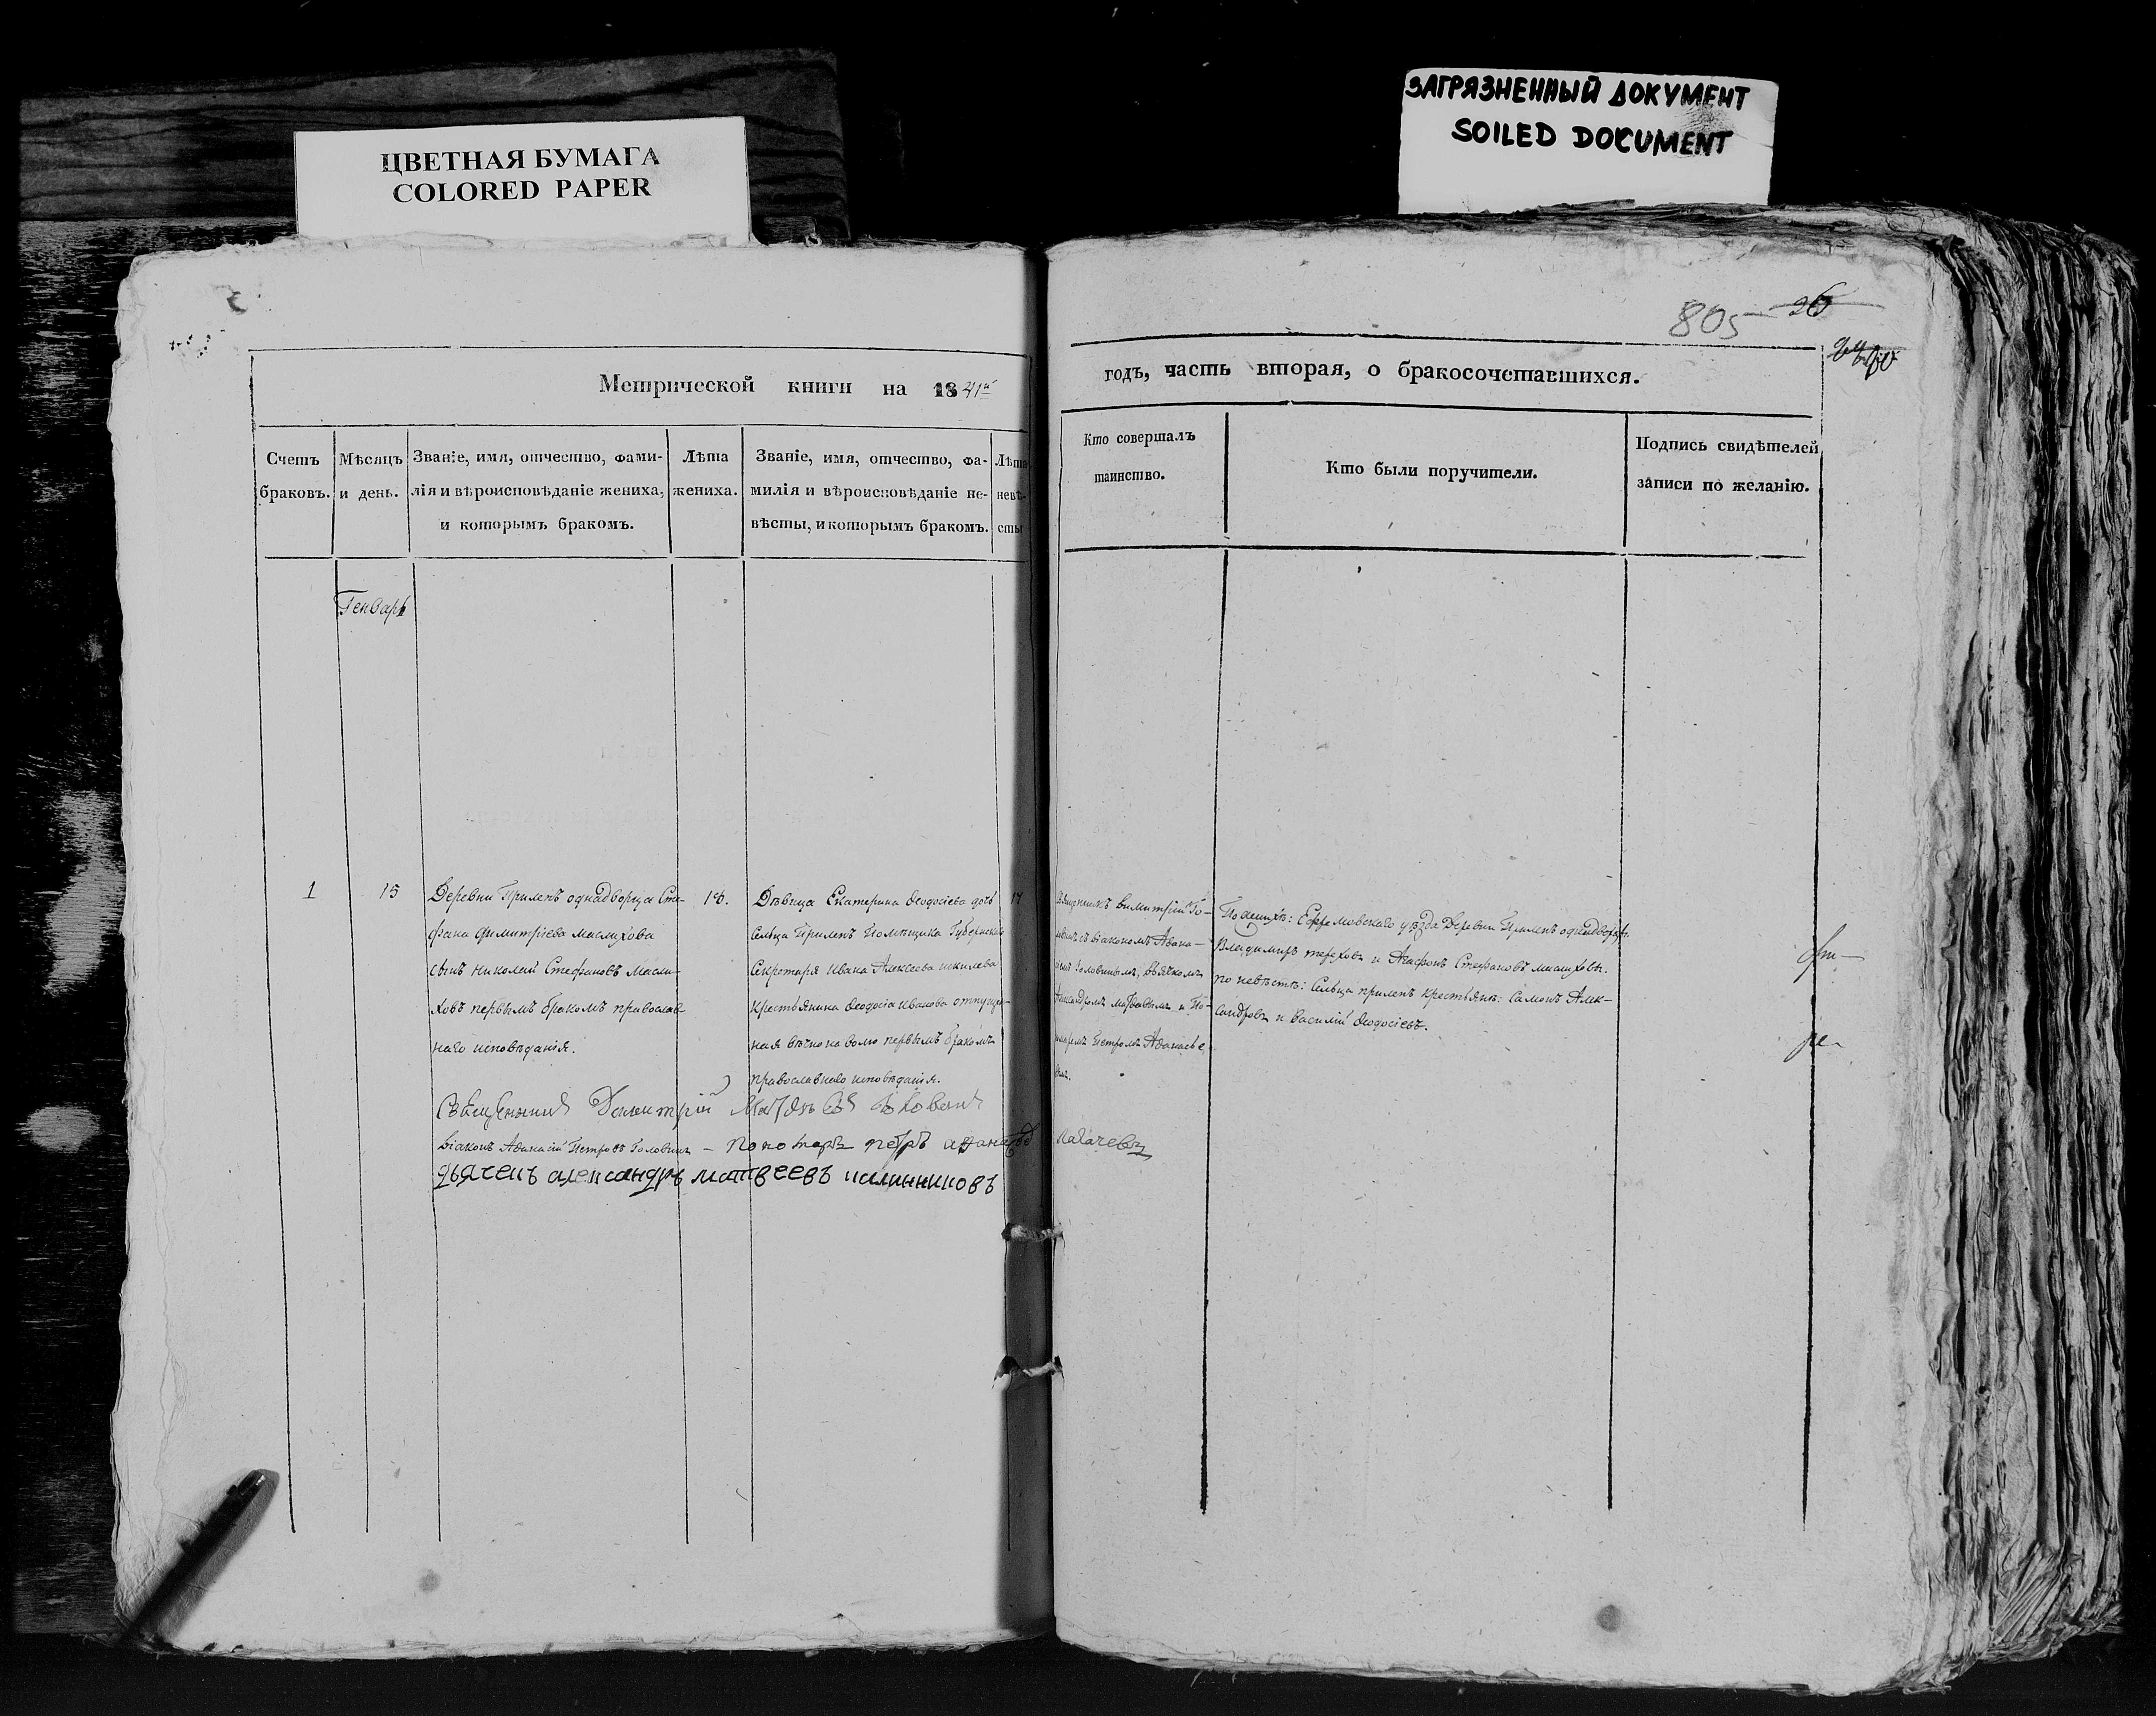 ЦВЕТНАЯ БУМАГА
COLORED PAPER
ЗАГРЯЗНЕННЫЙ ДОКУМЕНТ
SOILED DOCUMENT
805 26
Метрической книги на 1841й
годъ, часть вторая, о бракосочетавшихся.
Счетъ
браковъ.
Мѣсяцъ
и день.
Званіе, имя, отчество, фами-
лія и вѣроисповѣданіе жениха,
и которымъ бракомъ.
Лѣта
жениха.
Званіе, имя, отчество, фа-
милія и вѣроисповѣданіе не-
вѣсты, и которымъ бракомъ.
Лѣта
невѣ-
сты
Кто совершалъ
таинство.
Кто были поручители.
Подпись свидѣтелей
записи по желанію.
Генварь
1
15
Деревни Прилепъ однадворца Сте-
фана Димитріева Маслихова
сынъ Николай Стефановъ Масли-
ховъ первымъ бракомъ православ
наго исповѣданія.
18.
Дѣвица Екатерина Ѳеодосіева дочь
Сельца Прилепъ Помѣщика Губернскаго
Секротаря Ивана Алексеева
Крестьянина Ѳеодосіа Иванова отпущен-
ная вѣчно на волю первымъ бракомъ
православнаго исповѣданія.
17
Димитрій Го-
съ діакономъ Афана-
Головинымъ, дьячкомъ
Александромъ Матвѣевымъ и По-
Петромъ Афанасье
вымъ.
По женихѣ: Ефремовскаго уѣзда Деревни Прилепъ однадворцы
Владимиръ Тереховъ и Агафонъ Стефановъ Маслиховъ.
по невѣстѣ: Сельца прилепъ крестьяне: Самонъ Алек-
сандровъ и Василій Ѳеодосіевъ.
Священникъ Димитрій Матвѣевъ
Діаконъ Афанасій Петровъ Головинъ — Пономарь Петръ Афанасьевъ
дьячекъ александръ матвеевъ